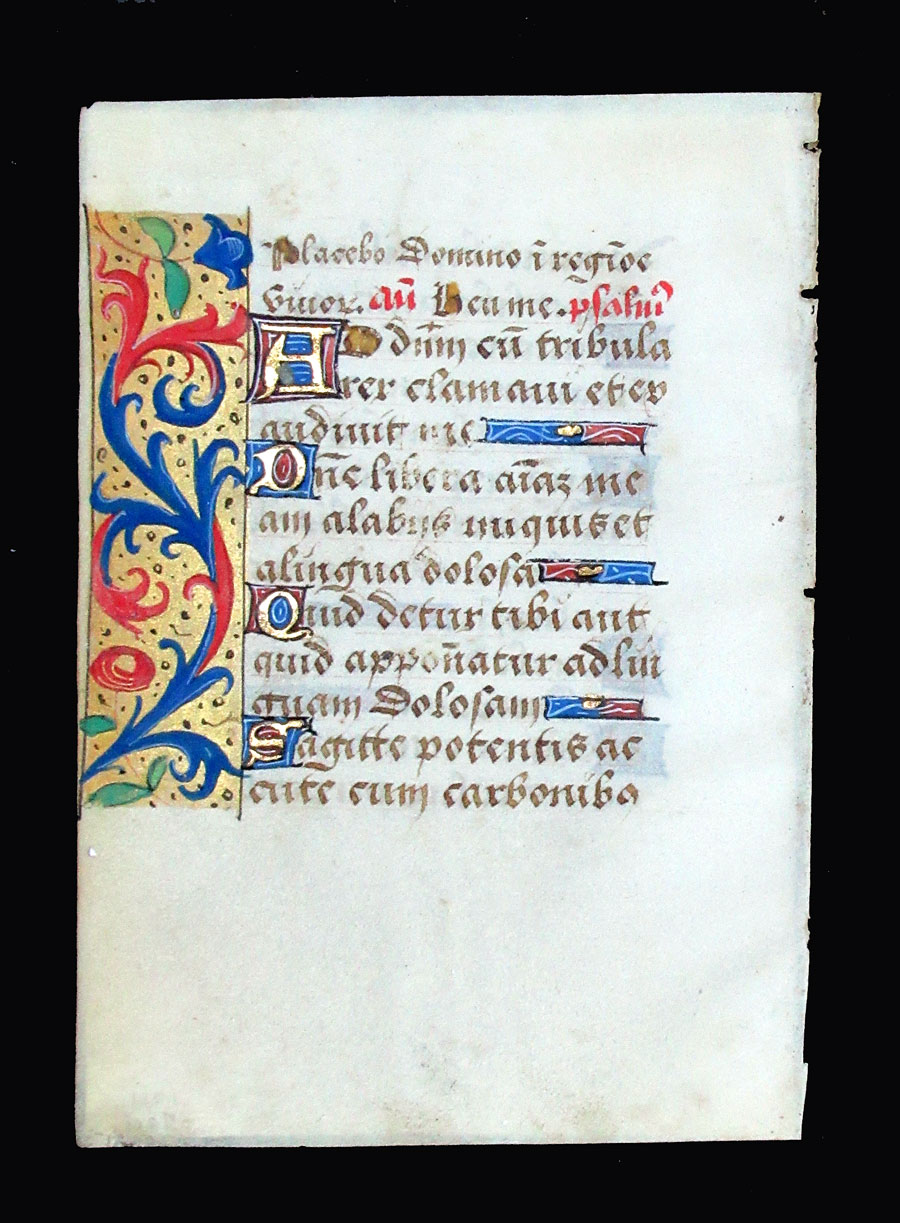 Placebo Domino ī regiōe
viuor. añ Heu me. psalm⁹
AD dn̄m cū tribula
rer clamaui et ex
audiuit me
Dn̄e libera aīaz me
am a labijs iniquis et
a lingua dolosa
Quid detur tibi aut
quid appon̄atur ad lin
guam dolosam
Sagitte potentis ac
cute cum carboniba